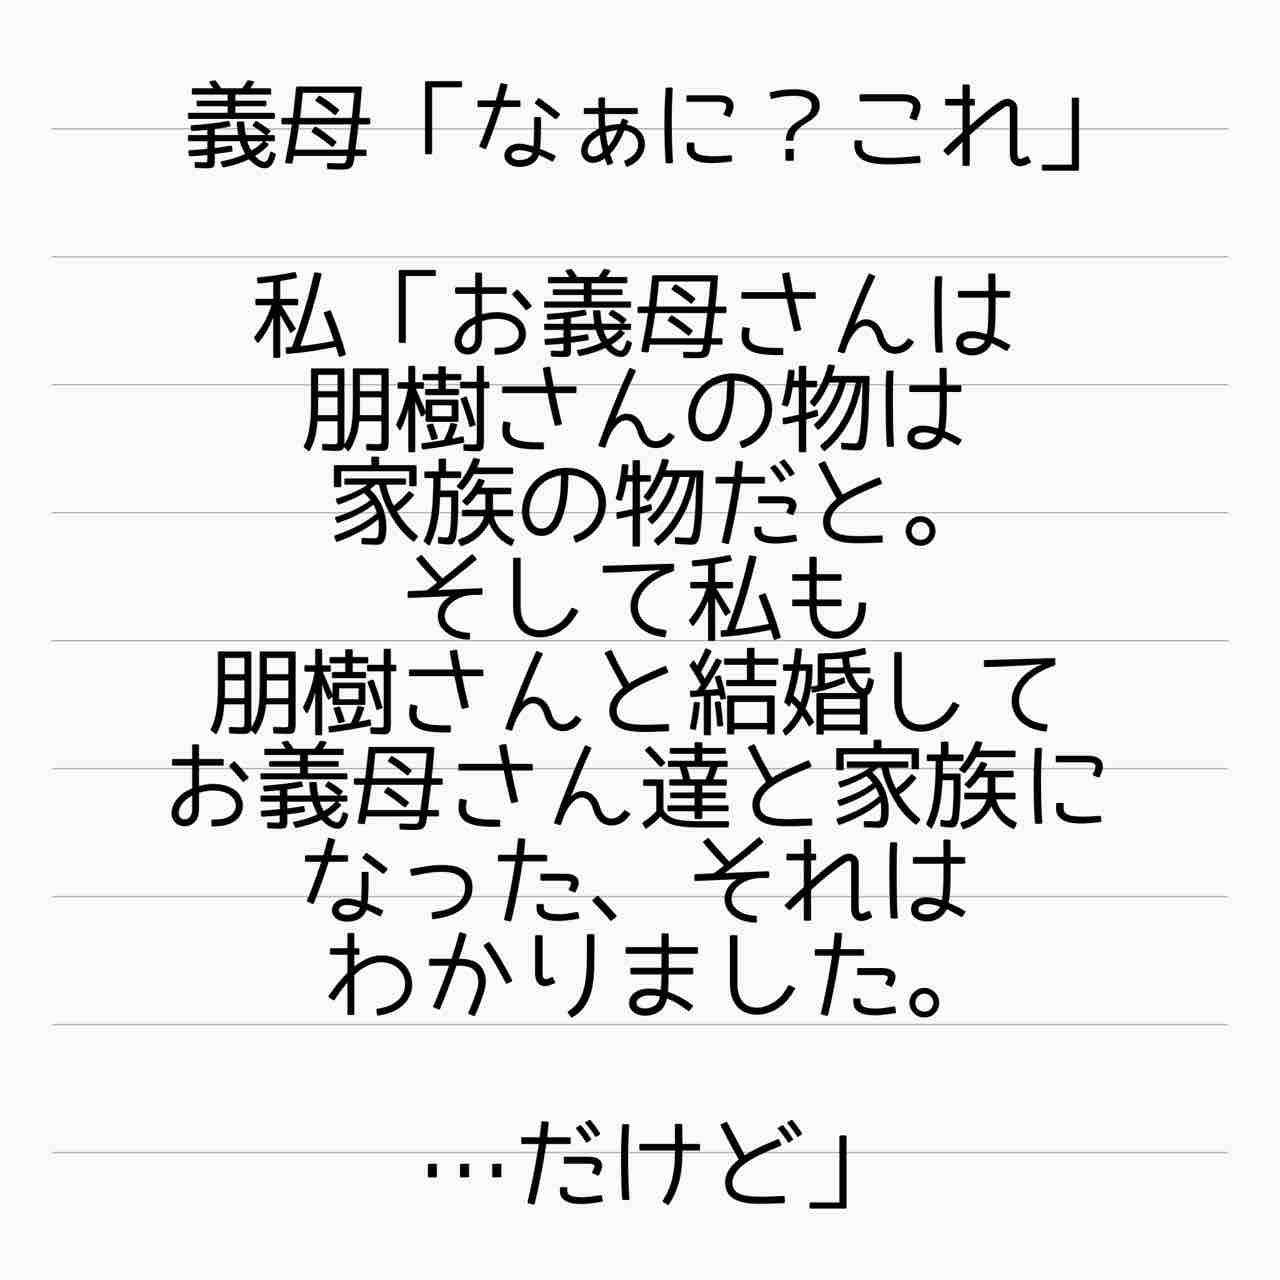 義母「なぁに？これ」
私「お義母さんは
朋樹さんの物は
家族の物だと。
そして私も
朋樹さんと結婚して
お義母さん達と家族に
なった、それは
わかりました。
…だけど」